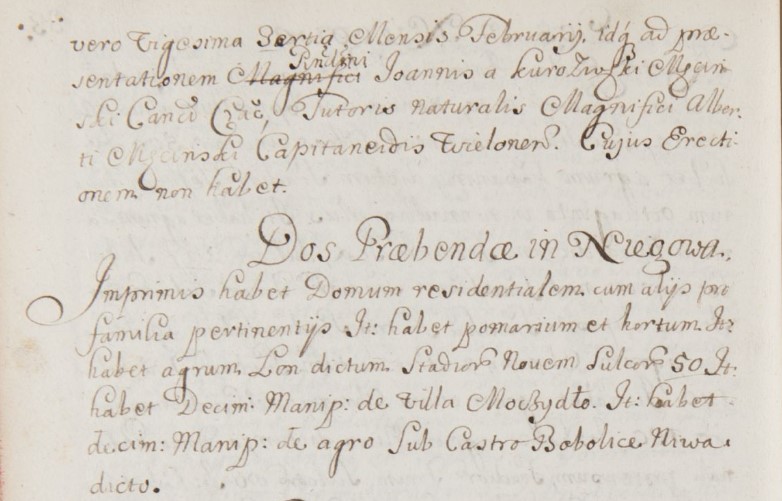 vero Vigesima Tertia Mensis Februarij. idq̃ ad præ-
sentationem Magnifici Joannis a Kurozwęki Męcin
ski Canc̃ Crac̃, Tutoris naturalis Magnifici Alber-
ti Męcinski Capitaneidis Wielonen̄. Cujus Erecti-
onem non habet.
Dos Præbendæ in Niegowa.
Imprimis habet Domum residentialem cum alijs pro
familia pertinentijs. It: habet pomarium et hortum. It:
habet agrum Lon dictum Stadior̄ Novem Sulcor̄ 50. It:
habet Decim: Manip: de Villa Moczydło. It: habet
decim: Manip: de agro sub Castro Bobolice Niwa
dicto.